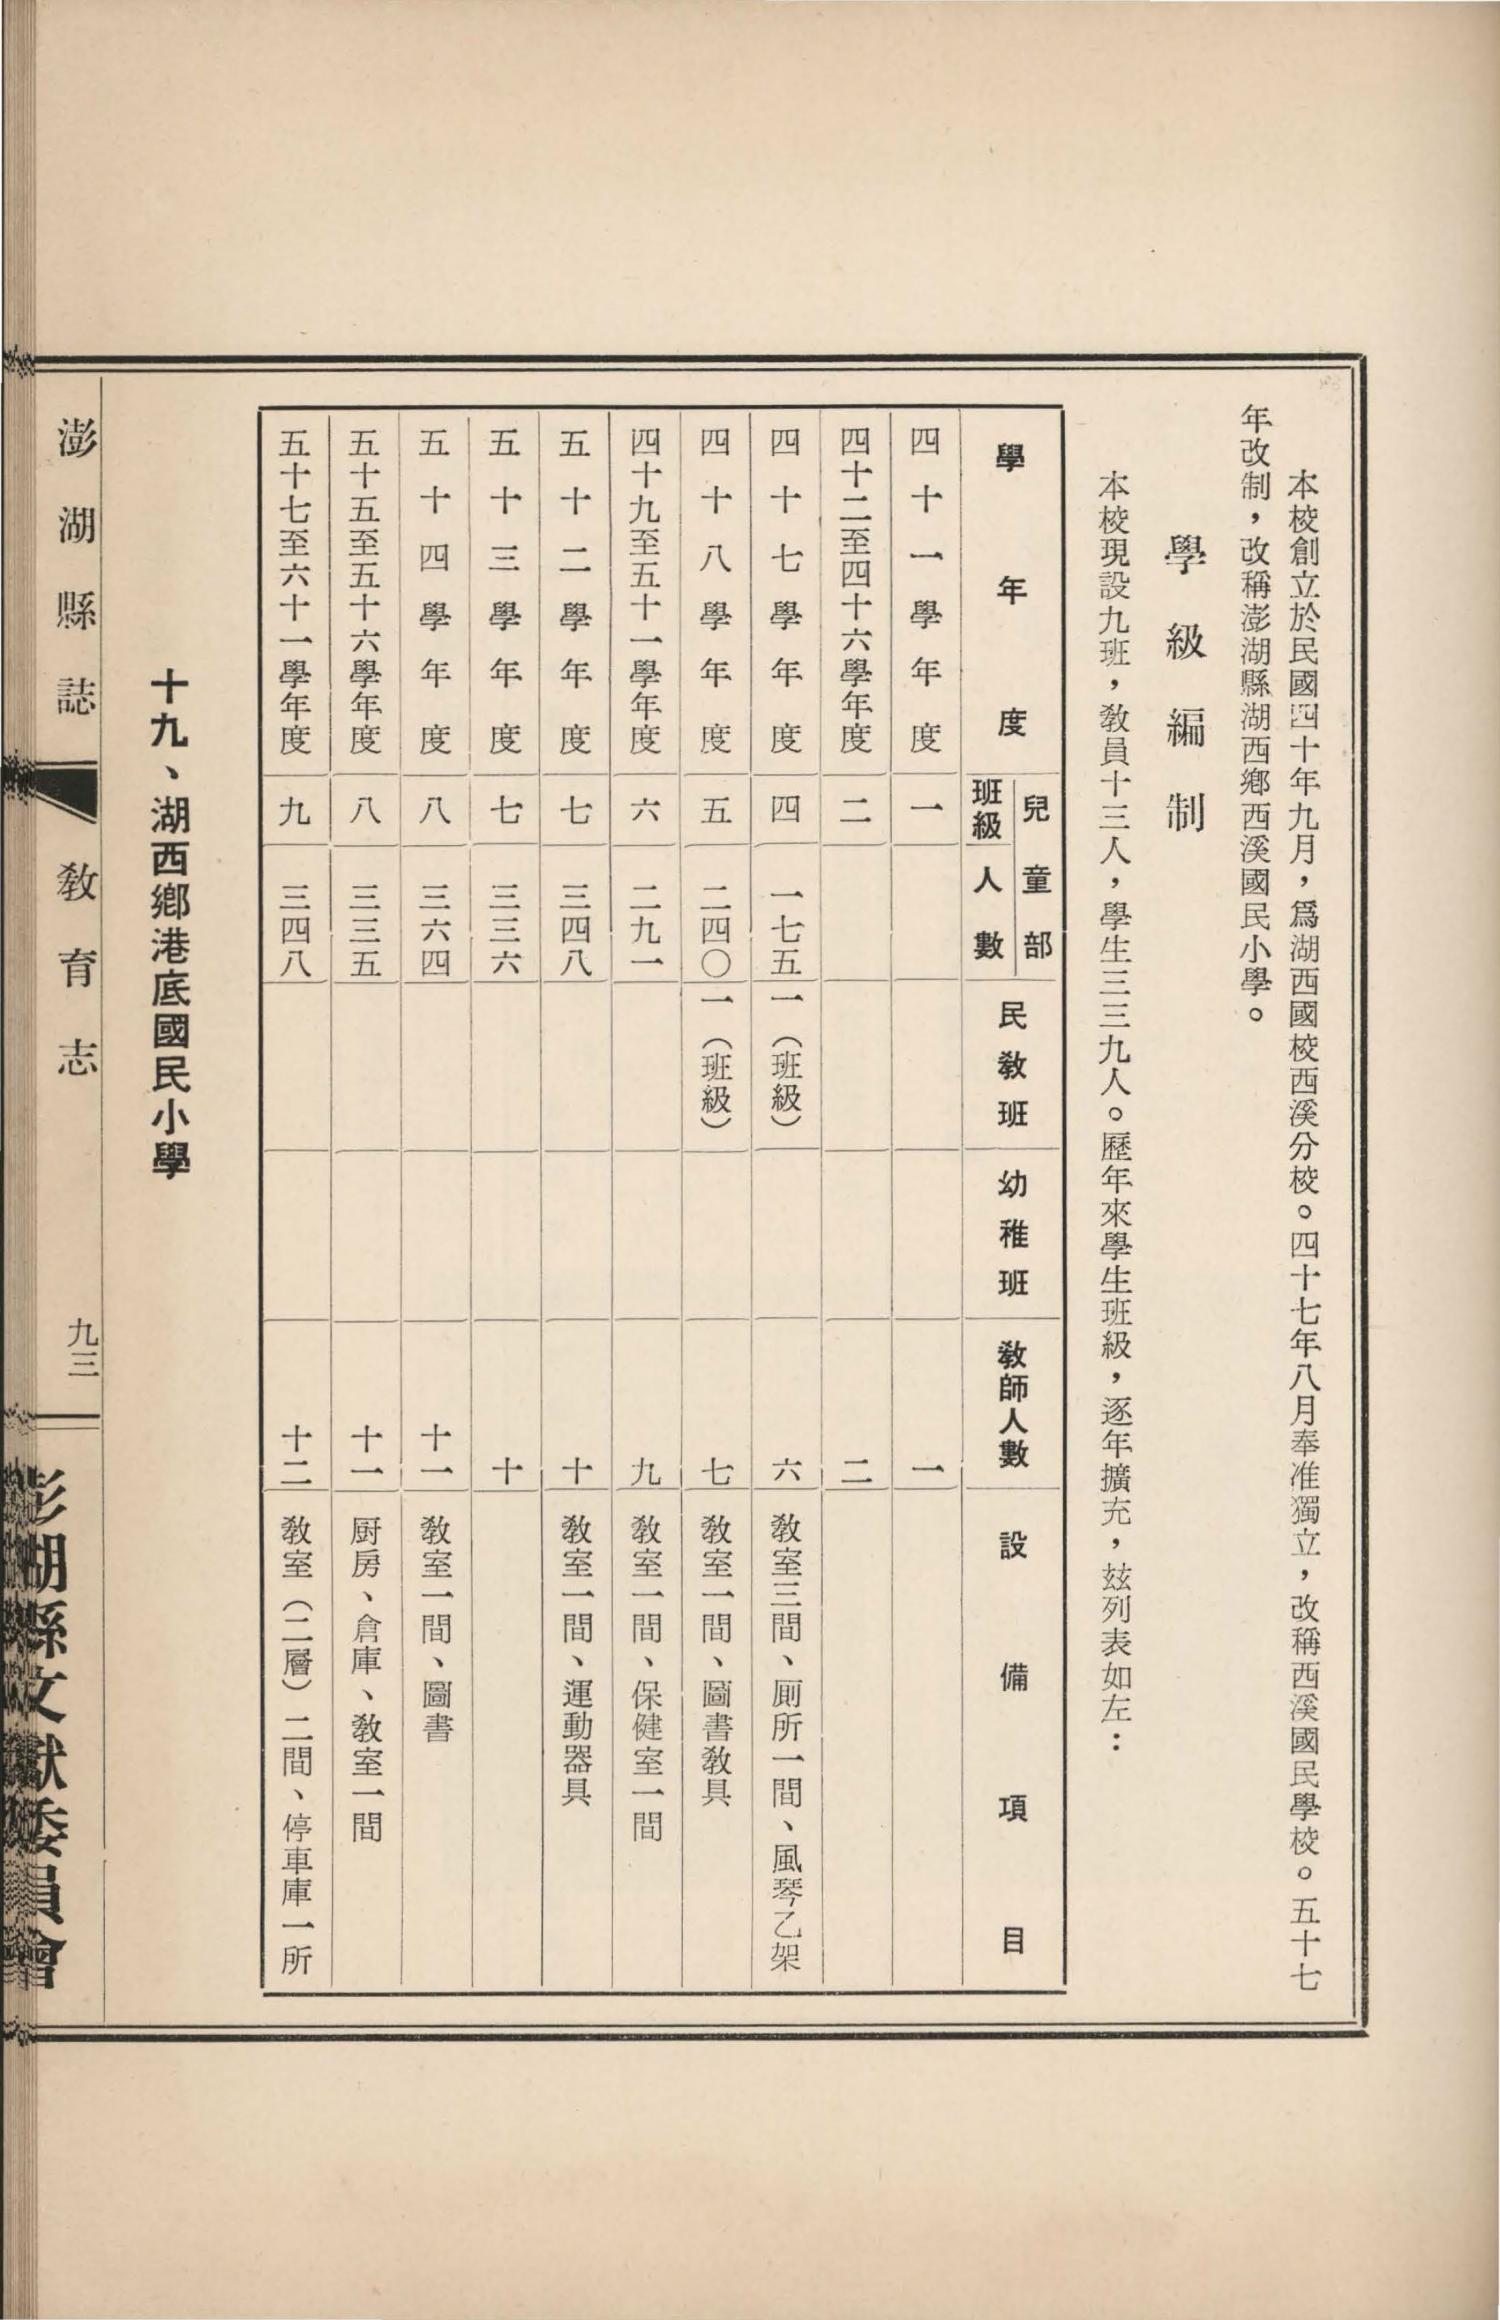 本校創立於民國四十年九月，爲湖西國校西溪分校。四十七年八月奉准獨立，改稱西溪國民學校。五十七
年改制，改稱澎湖縣湖西鄉西溪國民小學。
學級編制
本校現設九班，敎員十三人，學生三三九人。歷年來學生班級，逐年擴充，玆列表如左：
學年度 兒童部 班級 人數 民敎班 幼稚班 敎師人數 設備項目
四十一學年度 一 一
四十二至四十六學年度 二 二
四十七學年度 四 一七五 一（班級） 六 敎室三間、厠所一間、風琴乙架
四十八學年度 五 二四〇 一（班級） 七 敎室一間、圖書敎具
四十九至五十一學年度 六 二九一 九 敎室一間、保健室一間
五十二學年度 七 三四八 十 敎室一間、運動器具
五十三學年度 七 三三六 十
五十四學年度 八 三六四 十一 敎室一間、圖書
五十五至五十六學年度 八 三三五 十一 厨房、倉庫、敎室一間
五十七至六十一學年度 九 三四八 十二 敎室（二層）二間、停車庫一所
十九、湖西鄉港底國民小學
澎湖縣誌 敎育志 九三
澎湖縣文獻委員會